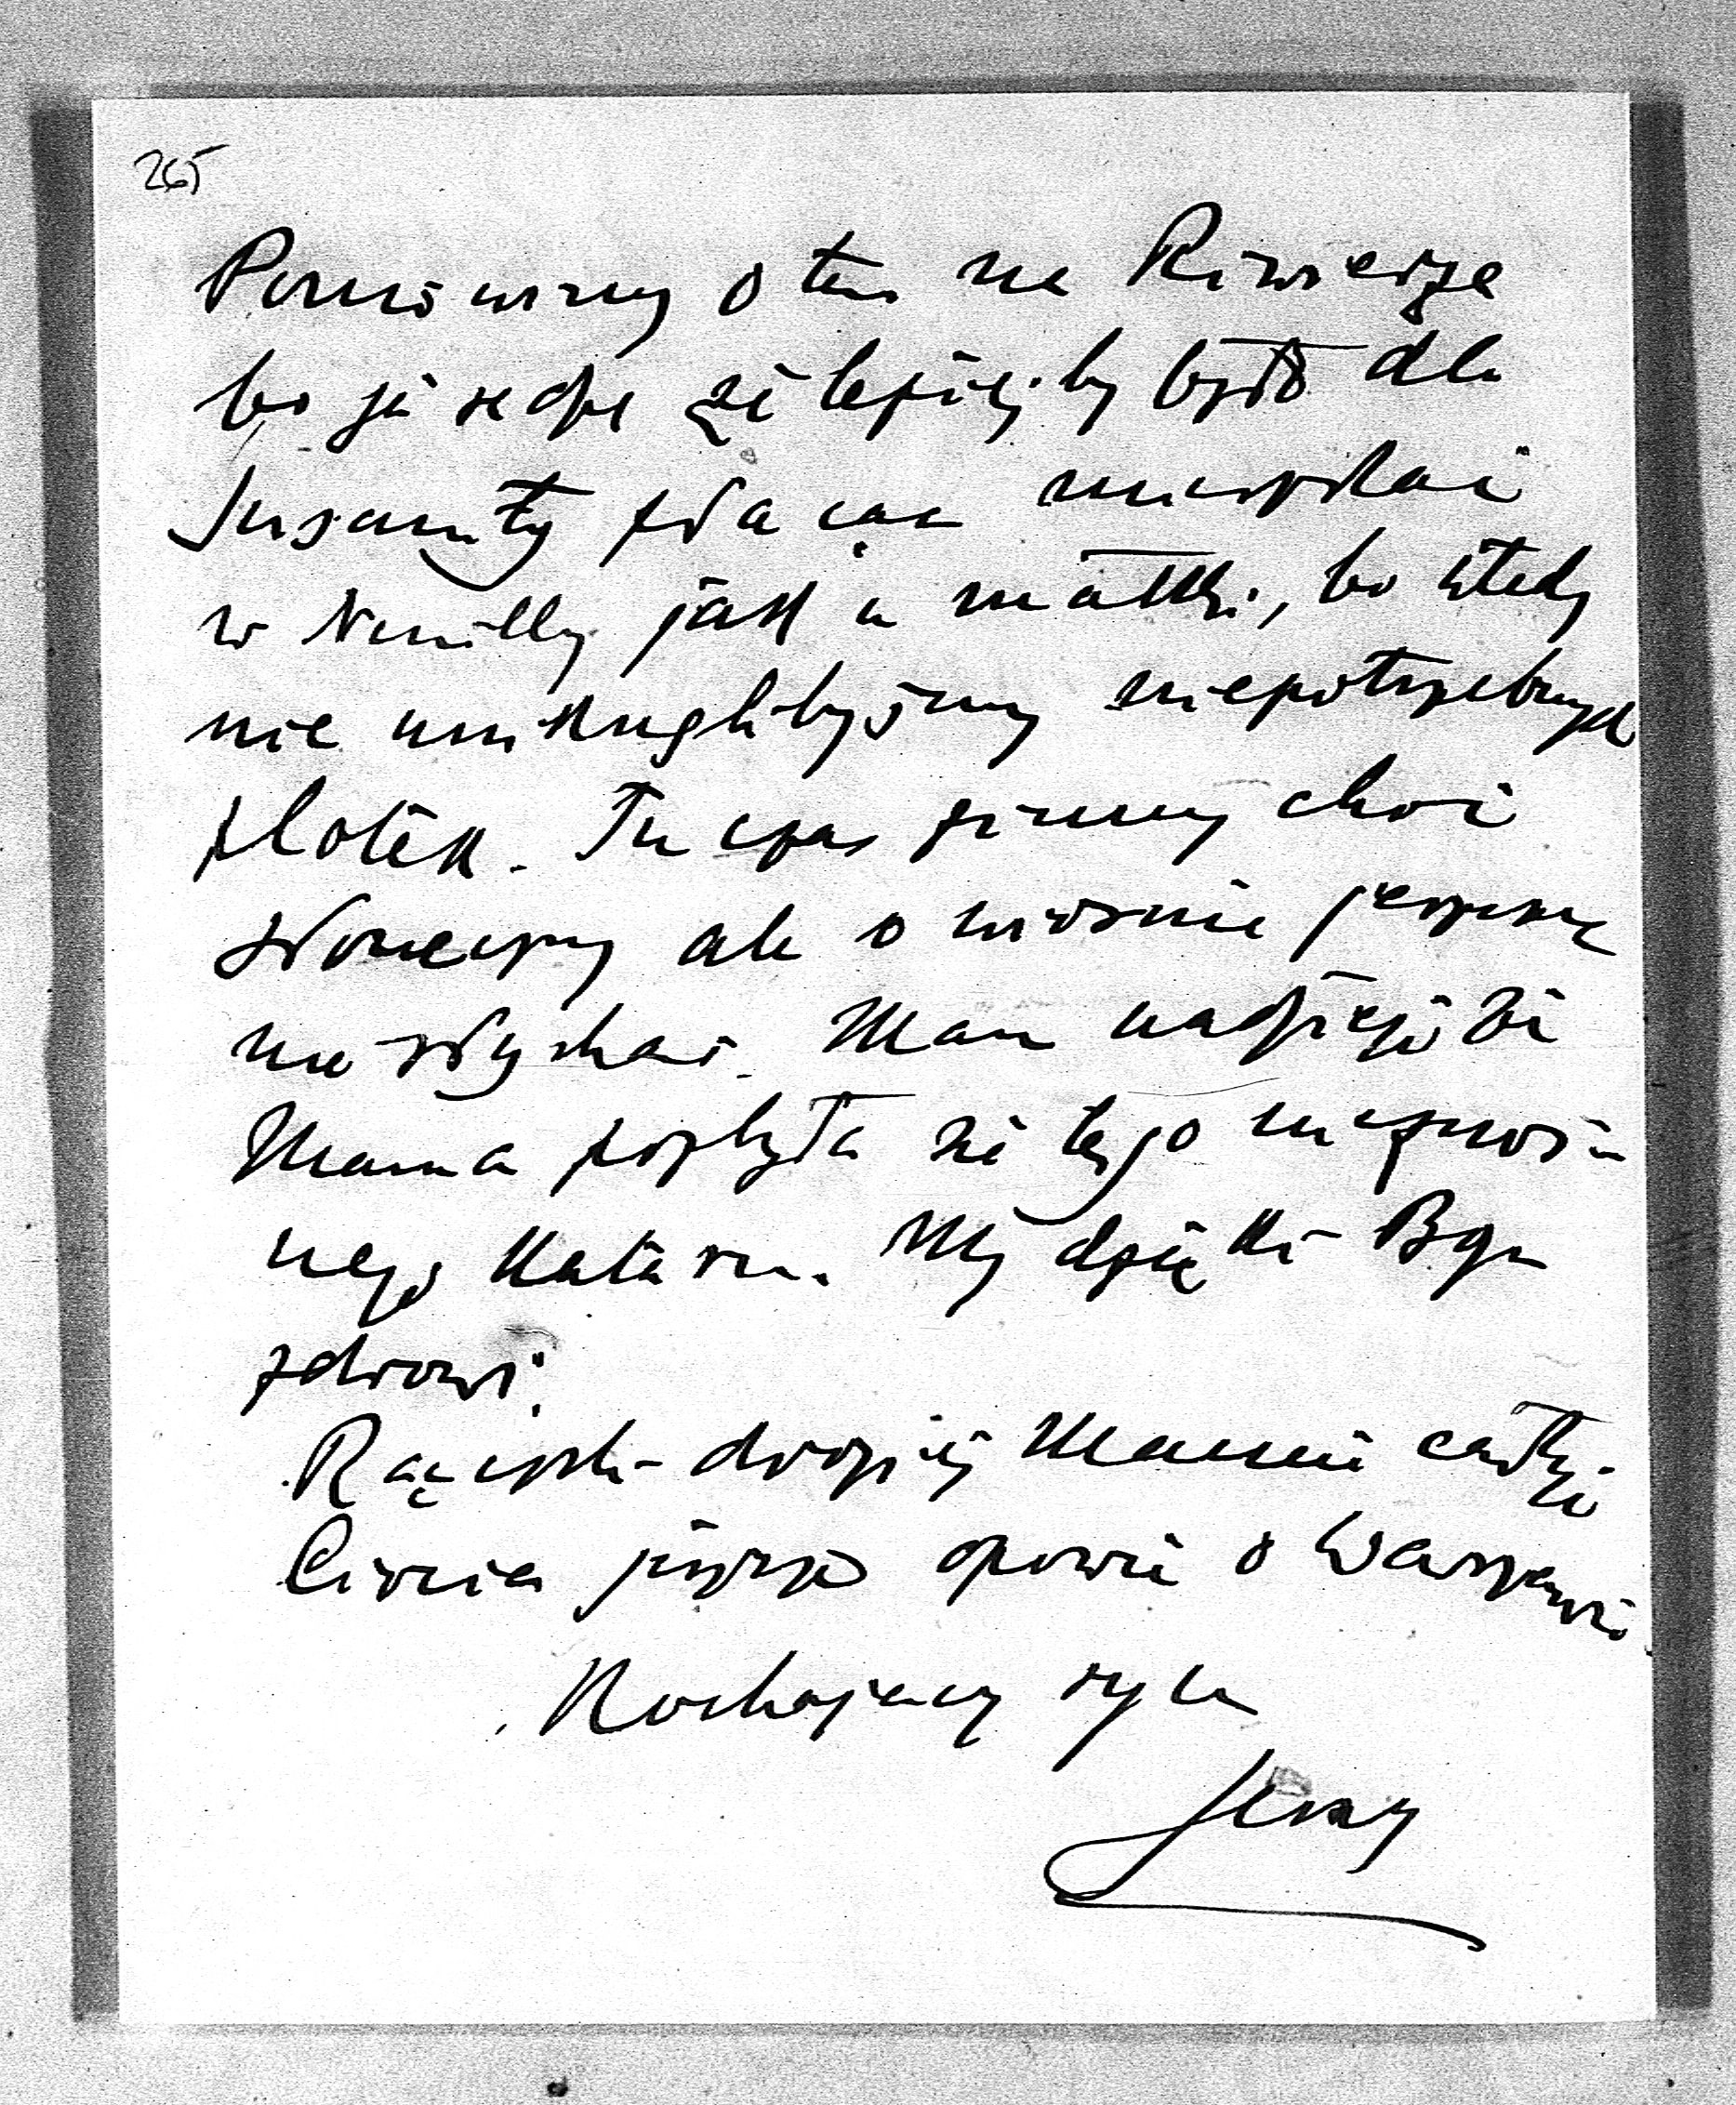 265
Pomówimy o tem na Riwierze
bo ja sądzę że lepiej by było dla
płacąc mieszkać
w Neuilly jak u matki, bo wtedy
nie uniknęlibyśmy niepotrzebnych
plotek. Tu czas zimny choć
słoneczny ale o wiośnie jeszcze
nie słychać. Mam nadzieję że
Mama pozbyła się tego nieznoś-
nego kataru. My dzięki Bogu
zdrowi.
Rączki drogiej Mamie całuję
Ciocia jeszcze opowie o Warszawie.
Kochający syn
Jerzy